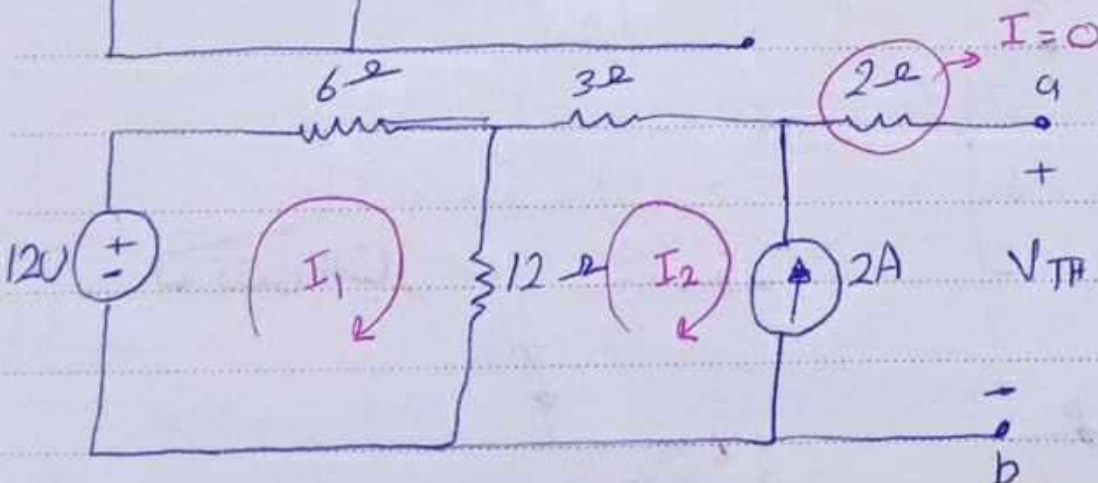 I = 0
6Ω 3Ω 2Ω a
+
12V + - I₁ 12Ω I₂ 2A VTH
-
b